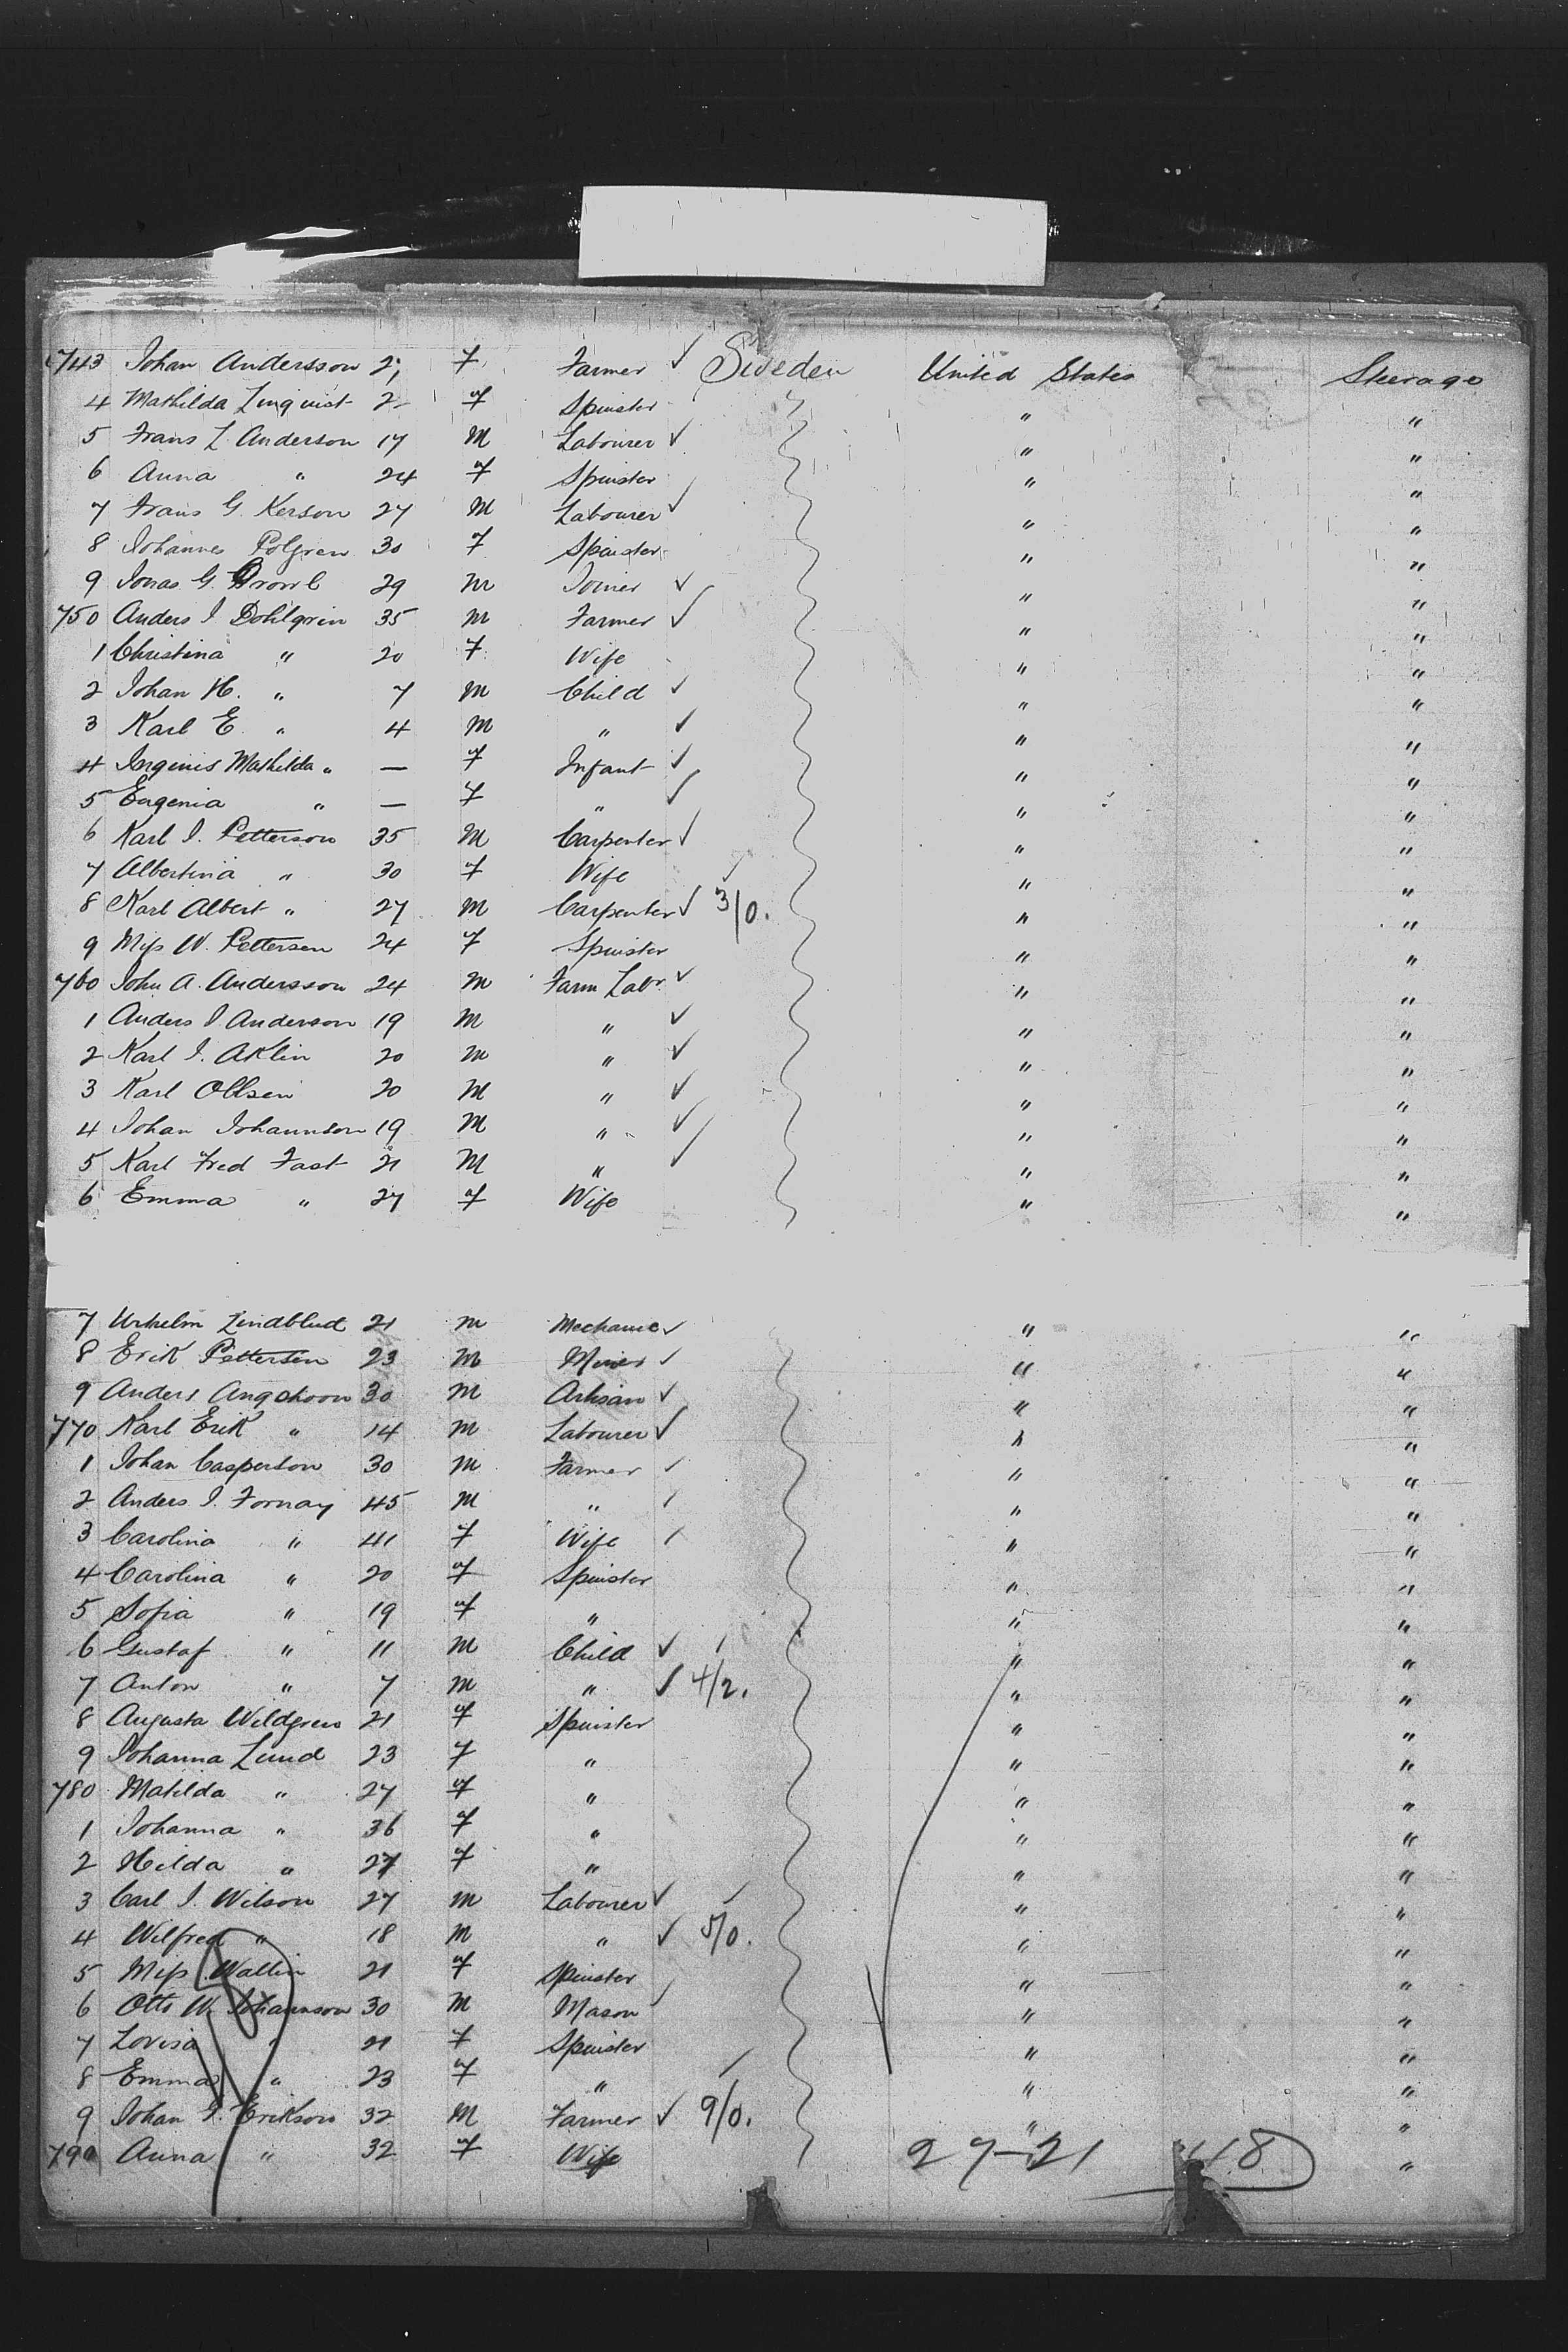 743 Johan Andersson 2 F Farmer ✓ Sweden United States Steerage
4 Mathilda Linquist 2 F Spinster " "
5 Frans L. Anderson 17 M Labourer ✓ " "
6 Anna " 24 F Spinster " "
7 Frans G. Kerson 27 M Labourer ✓ " "
8 Johannes Polgren 30 F Spinster " "
9 Jonas G. 29 M Joiner ✓ " "
750 Anders J Dohlgrin 35 M Farmer ✓ " "
1 Christina " 20 F Wife " "
2 Johan H. " 7 M Child ✓ " "
3 Karl E. " 4 M " ✓ " "
4 Mathilda " — F Infant ✓ " "
5 Eugenia " — F " ✓ " "
6 Karl J. Petterson 35 M Carpenter ✓ " "
7 Albertina " 30 F Wife " "
8 Karl Albert " 27 M Carpenter ✓ 3/0. " "
9 Miss W. Pettersen 24 F Spinster " "
760 John A. Andersson 24 M Farm Labr ✓ " "
1 Anders J Anderson 19 M " ✓ " "
2 Karl J. Aklin 20 M " ✓ " "
3 Karl Ollsen 20 M " ✓ " "
4 Johan Johannson 19 M " ✓ " "
5 Karl Fred Fast 21 M " ✓ " "
6 Emma " 27 F Wife " "
7 Lindblud 21 M Mechanic ✓ " "
8 Erik Pettersen 23 M Miner ✓ " "
9 Anders 30 M Artisan ✓ " "
770 Karl Erik " 14 M Labourer ✓ " "
1 Johan Casperson 30 M Farmer ✓ " "
2 Anders J. Fornay 45 M " ✓ " "
3 Carolina " 41 F Wife ✓ " "
4 Carolina " 20 F Spinster " "
5 Sofia " 19 F " " "
6 Gustaf " 11 M Child ✓ " "
7 Anton " 7 M " ✓ 4/2. " "
8 Augusta Wildgren 21 F Spinster " "
9 Johanna Lund 23 F " " "
780 Matilda " 27 F " " "
1 Johanna " 36 F " " "
2 Hilda " 27 F " " "
3 Carl J. Wilson 27 M Labourer ✓ " "
4 Wilfred " 18 M " ✓ 5/0. " "
5 Miss Wallin 21 F Spinster " "
6 Otto W. Johannson 30 M Mason ✓ " "
7 Lovisa " 21 F Spinster " "
8 Emma " 23 F " " "
9 Johan J. Erikson 32 M Farmer ✓ 9/0. " "
790 Anna " 32 F Wife "
27-21 48